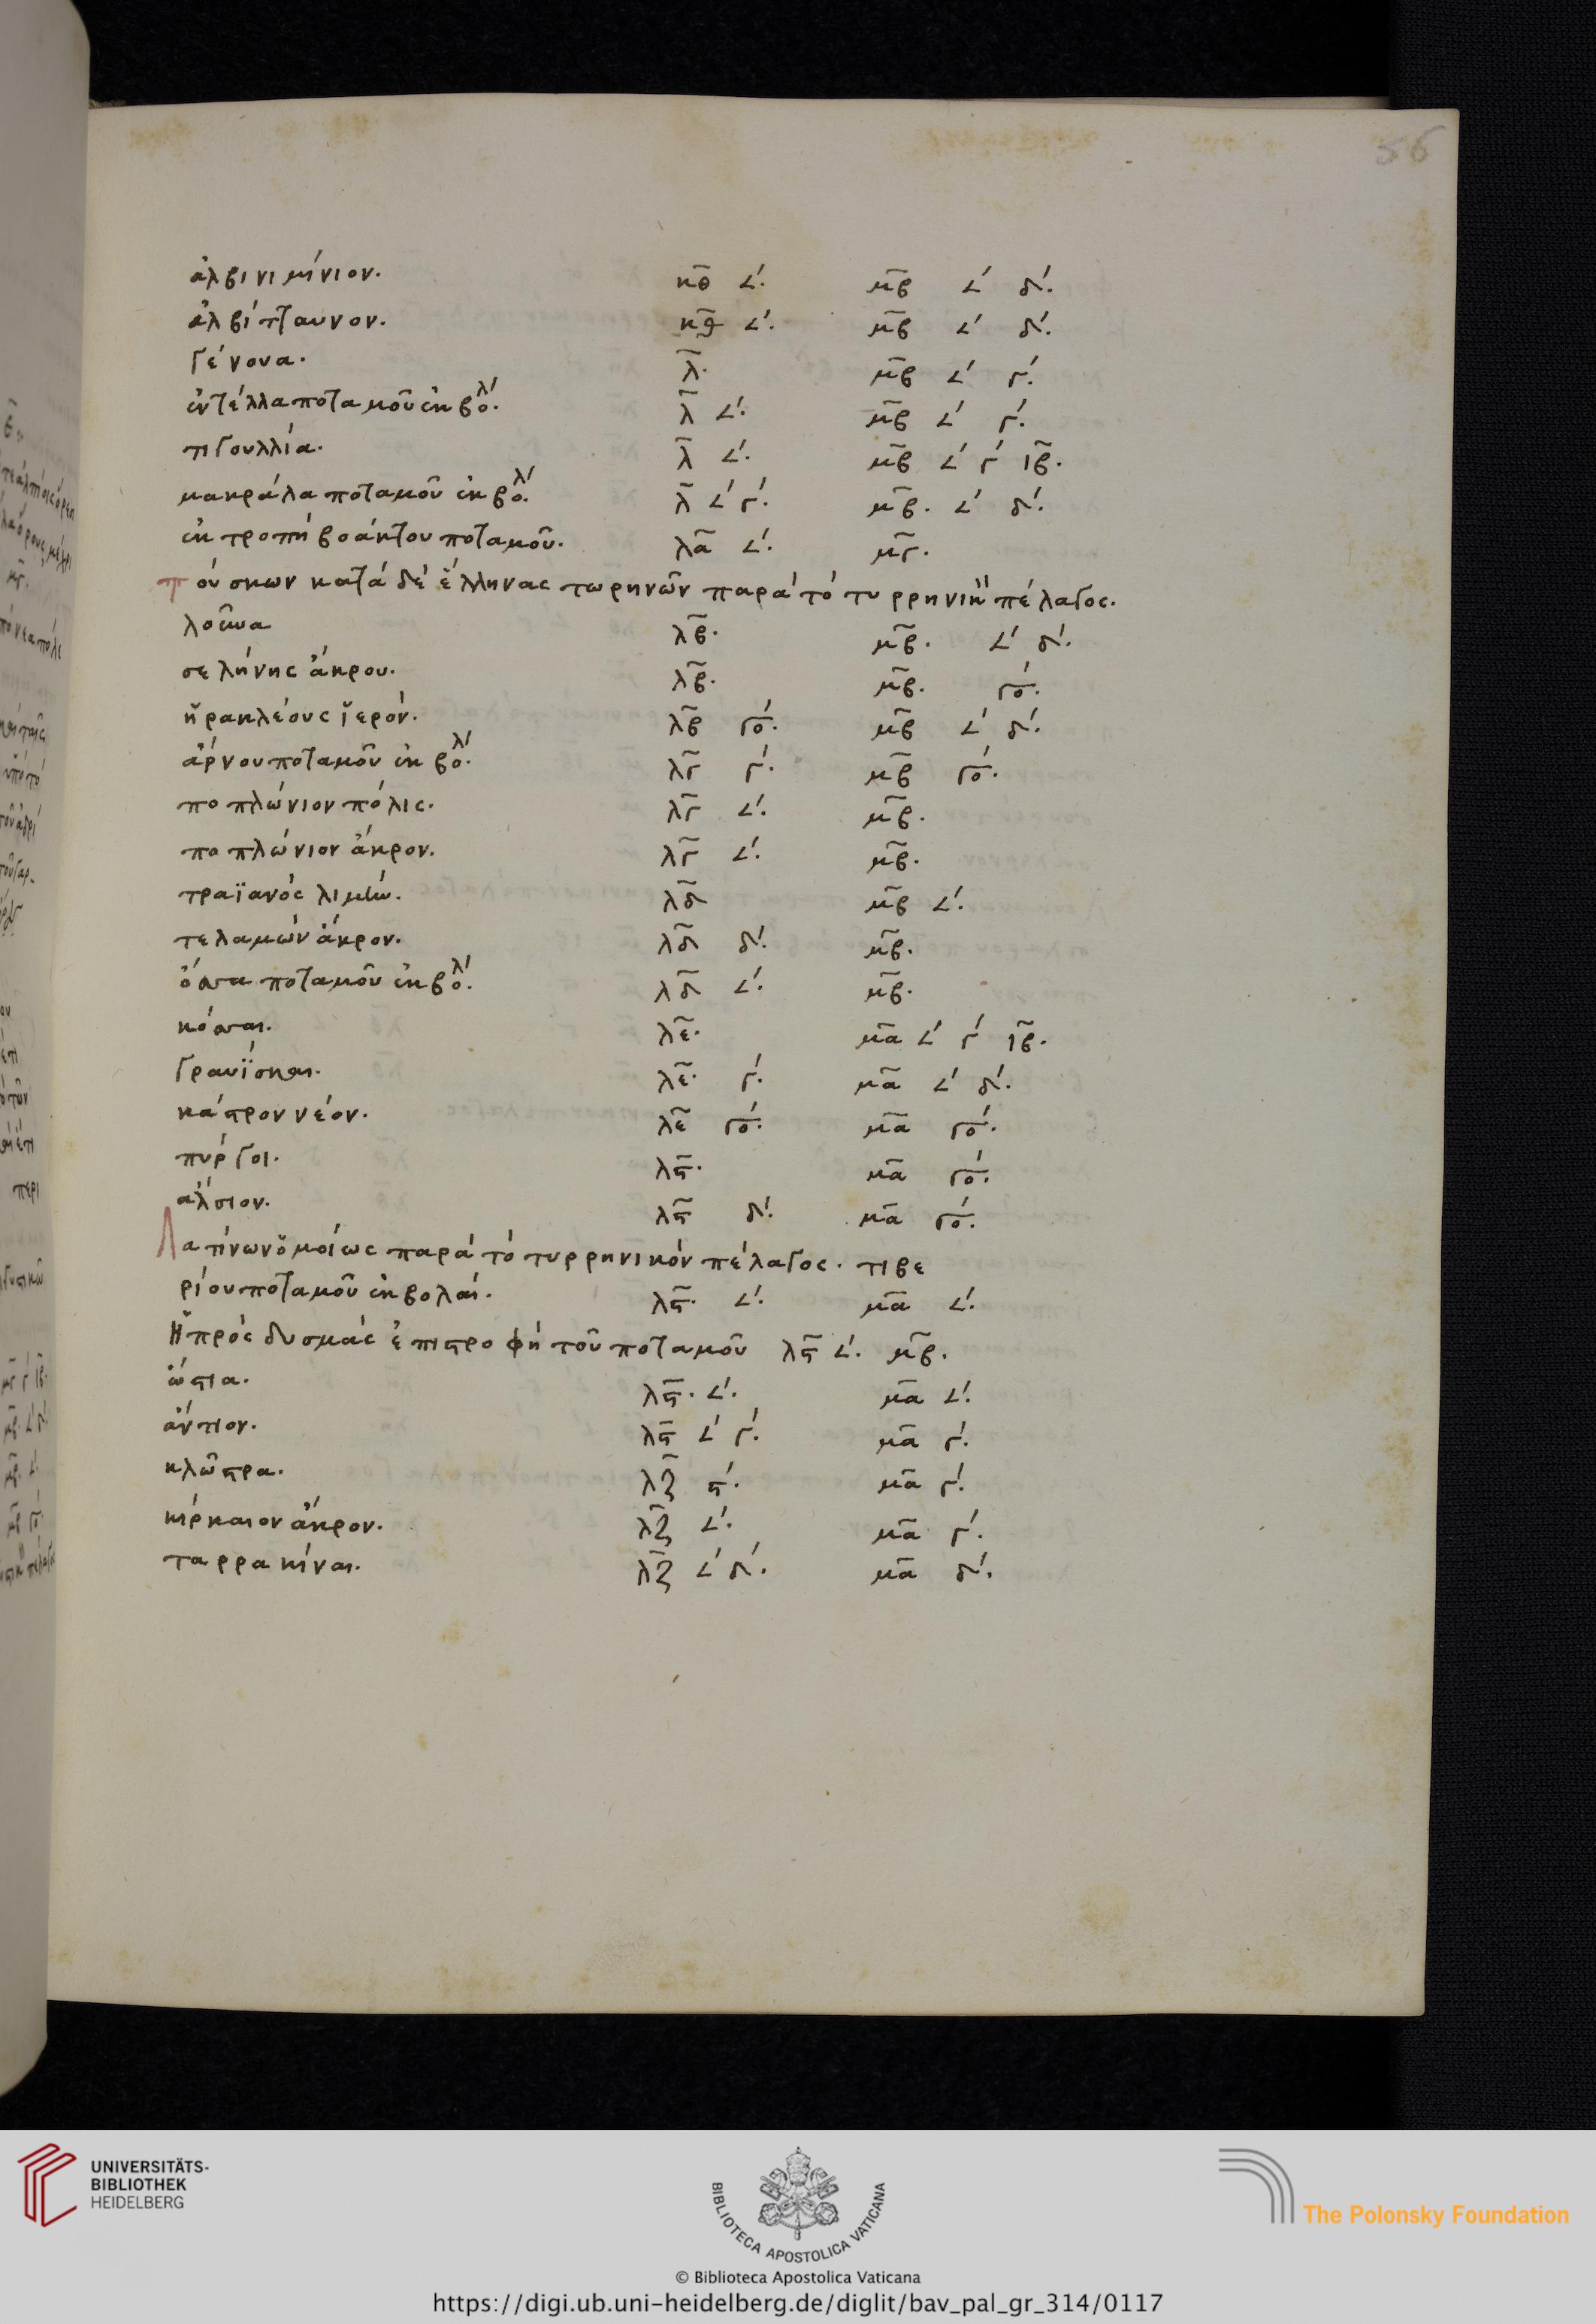 56
ἀλβινιμίνιον. κθ̅ 𐅵´. μβ̅ 𐅵´ δ´.
ἀλβίτταυνον. κθ̅ 𐅵´. μβ̅ 𐅵´ δ´.
γένουα. λ̅. μβ̅ 𐅵´ γ´.
ἐντέλλα ποταμοῦ ἐκβολ´. λ̅ 𐅵´. μβ̅ 𐅵´ γ´.
τιγουλλία. λ̅ 𐅵´. μβ̅ 𐅵´ γ´ ιβ̅.
μακράλα ποταμοῦ ἐκβολ´. λ̅ 𐅵´ γ´. μβ̅. 𐅵´ δ´.
ἐκτροπή βοάκτου ποταμοῦ. λα̅ 𐅵´. μγ̅.
τούσκων κατά δέ ἕλληνας τωρηνῶν παρά τό τυρρηνικ πέλαγος.
λοῦνα λβ̅. μβ̅. 𐅵´ δ´.
σελήνης ἄκρου. λβ̅. μβ̅. γο´.
ἡρακλέους ἱερόν. λβ̅ γο´. μβ̅ 𐅵´ δ´.
ἄρνου ποταμοῦ ἐκβολ´. λγ̅ γ´. μβ̅ γο´.
ποπλώνιον πόλις. λγ̅ 𐅵´. μβ̅.
ποπλώνιον ἄκρον. λγ̅ 𐅵´. μβ̅.
τραϊανός λιμήν. λδ̅ μβ̅ 𐅵´.
τελαμών ἄκρον. λδ̅ δ´. μβ̅.
ὄσσα ποταμοῦ ἐκβολ´. λδ̅ 𐅵´. μβ̅.
κόσσαι. λε̅. μα̅ 𐅵´ γ´ ιβ̅.
γραυΐσκαι. λε̅. γ´. μα̅ 𐅵´ δ´.
κάστρον νέον. λε̅ γο´. μα̅ γο´.
πύργοι. λϛ̅. μα̅ γο´.
ἄλσιον. λϛ̅ δ´. μα̅ γο´.
Λατίνων ὁμοίως παρά τό τυρρηνικόν πέλαγος. τιβε
ρίου ποταμοῦ ἐκβολαί. λϛ̅. 𐅵´. μα̅ 𐅵´.
Ἡ πρός δυσμάς ἐπιστροφή τοῦ ποταμοῦ λϛ̅ 𐅵´. μβ̅.
ὤστια. λϛ̅. 𐅵´. μα̅ 𐅵´.
ἄντιον. λϛ̅ 𐅵´ γ´. μα̅ γ´.
κλῶστρα. λζ̅ ϛ´. μα̅ γ´.
κίρκαιον ἄκρον. λζ̅ 𐅵´. μα̅ γ´.
ταρρακίναι. λζ̅ 𐅵´ δ´. μα̅ δ´.
UNIVERSITÄTS-
BIBLIOTHEK
HEIDELBERG
BIBLIOTECA APOSTOLICA VATICANA
The Polonsky Foundation
© Biblioteca Apostolica Vaticana
https://digi.ub.uni-heidelberg.de/diglit/bav_pal_gr_314/0117